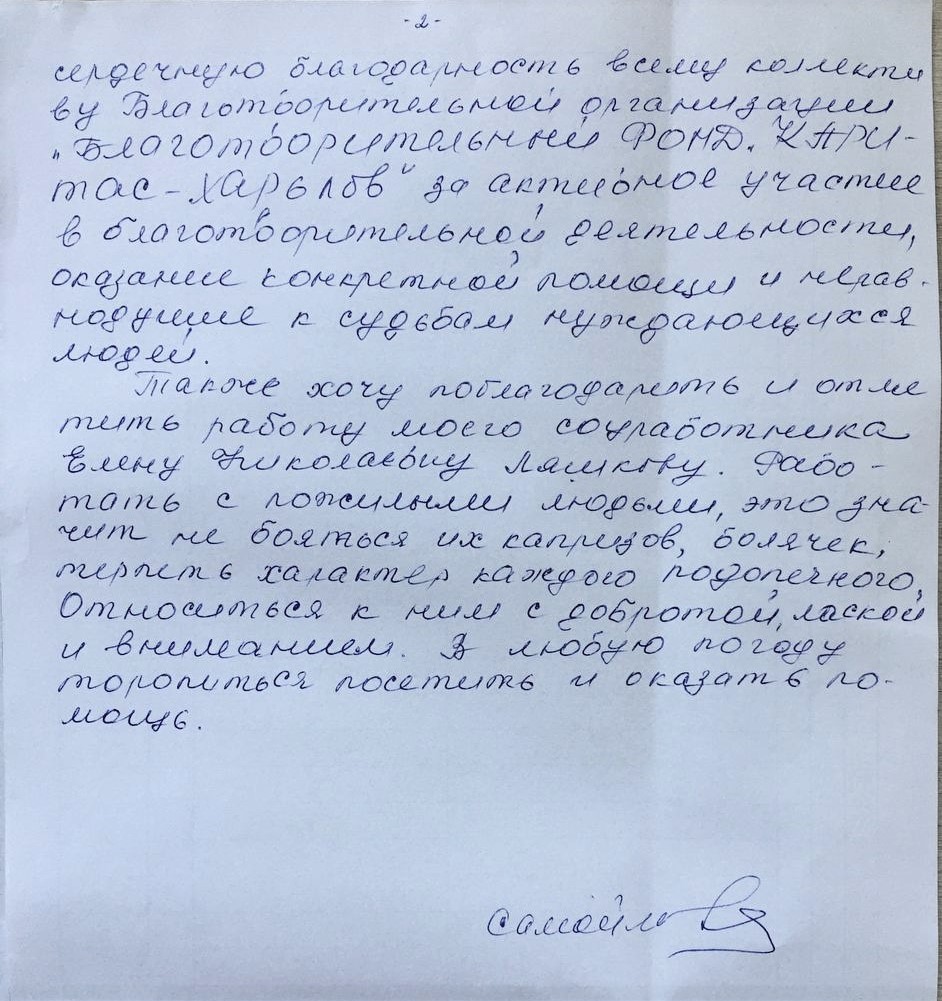 - 2 -
сердечную благодарность всему коллекти
ву Благотворительной организации
„Благотворительный ФОНД. КАРИ-
тас-Харьков" за активное участие
в благотворительной деятельности,
оказание конкретной помощи и нерав-
нодушие к судьбам нуждающихся
людей.
Также хочу поблагодарить и отме
тить работу моего соцработника
Елену Николаевну Ляшкову. Рабо-
тать с пожилыми людьми, это зна-
чит не бояться их капризов, болячек,
терпеть характер каждого подопечного,
Относиться к ним с добротой, лаской
и вниманием. В любую погоду
торопиться посетить и оказать по-
мощь.